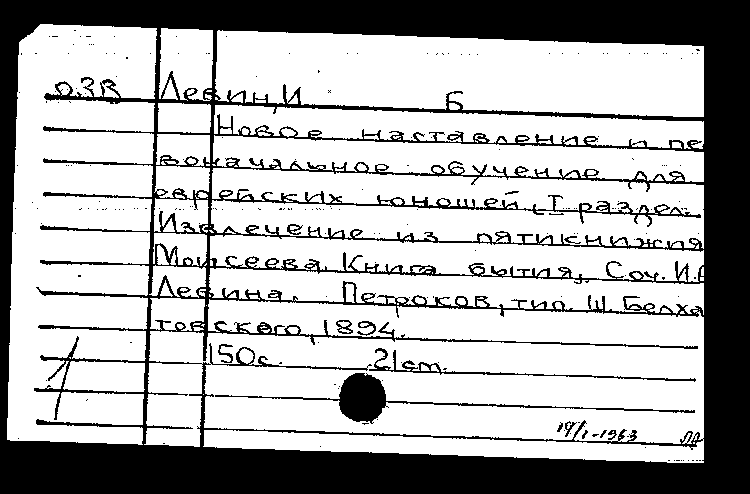 0.3В Левин, И Б
Новое наставление и пе
воначальное обучение для
еврейских юношей, I раздел.
Извлечение из пятикнижия
Моисеева. Книга бытия, Соч. И.
Левина. Петроков, тип. Ш. Белха
товского, 1894.
150с. 21cm.
19/I-1963